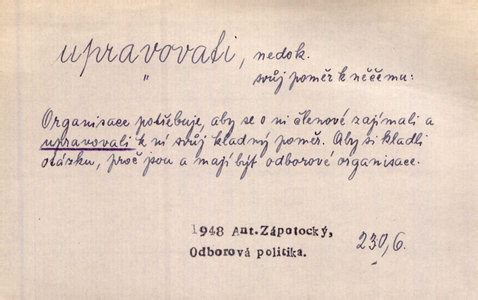 upravovati, nedok.
" svůj poměr k něčemu:
Organisace potřebuje, aby se o ni členové zajímali a
upravovali k ní svůj kladný poměr. Aby si kladli
otázku, proč jsou a mají být odborové organisace.
1948 Ant.Zápotocký,
Odborová politika.
230,6.